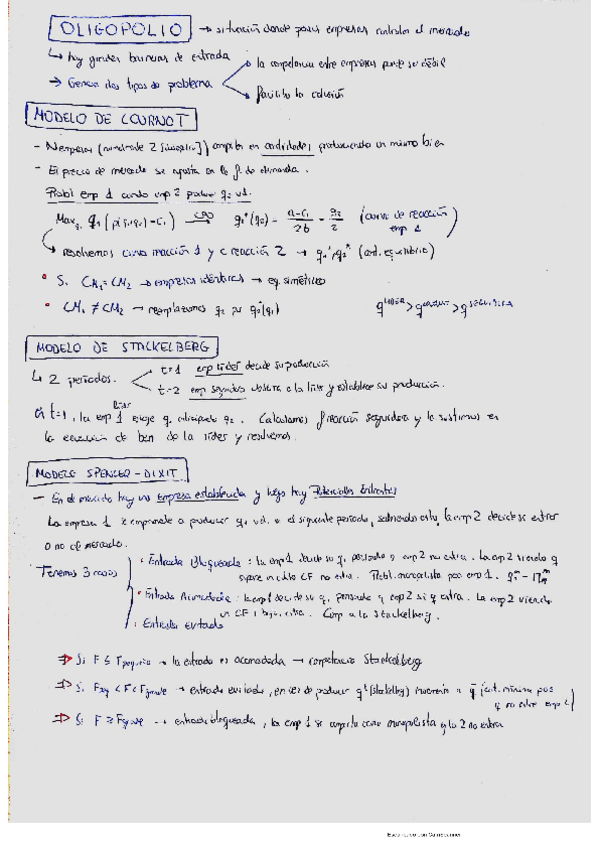 OLIGOPOLIO → situación donde pocas empresas controlan el mercado
↳ hay grandes barreras de entrada
→ Genera dos tipos de problema
la competencia entre empresas puede ser débil
facilita la colusión
MODELO DE COURNOT
- N empresas (normalmente 2 [duopolio]) compiten en cantidades produciendo un mismo bien
- El precio de mercado se ajusta en la f. de demanda.
Probl. emp 1 cuando emp 2 produce q₂ ud.
Max q₁ (p(q₁,q₂) - C₁) → CPO q₁*(q₂) = a-c₁/2b - q₂/2 (curva de reacción emp 1)
resolvemos curva reacción 1 y c reacción 2 → q₁*, q₂* (cant. equilibrio)
• Si CM₁ = CM₂ → empresas idénticas → eq. simétrico
• CM₁ ≠ CM₂ → reemplazamos q₂ por q₂*(q₁) q^LIDER > q^COURNOT > q^SEGUIDORA
MODELO DE STACKELBERG
↳ 2 periodos.
t=1 emp líder decide su producción
t=2 emp seguidora observa a la líder y establece su producción.
En t=1, la emp 1 líder elige q₁ anticipando q₂. Calculamos f reacción seguidora y la sustituimos en
la ecuación de ben de la líder y resolvemos.
MODELO SPENCER-DIXIT
- En el mercado hay una empresa establecida y luego hay Potenciales Entrantes
La empresa 1 se compromete a producir q₁ ud. en el siguiente periodo, sabiendo esto, la emp 2 decide si entrar
o no al mercado.
Tenemos 3 casos
• Entrada Bloqueada: la emp 1 decide su q₁ pensando q emp 2 no entra. La emp 2 viendo q
supone CF no entra. Probl. monopolista para emp 1. q₁ᵐ - Πᵐ
• Entrada Acomodada: la emp 1 decide su q₁ pensando q emp 2 si q entra. La emp 2 viendo
un CF bajo, entra. Comp a la Stackelberg.
• Entrada evitada
⇒ Si F ≤ F pequeño → la entrada es acomodada → competencia Stackelberg
⇒ Si F peq < F < F grande → entrada evitada, en vez de producir qˡ (Stackelberg) q̄ (cant. mínima para q no entre emp 2)
⇒ Si F ≥ F grande → entrada bloqueada, la emp 1 se comporta como monopolista y la 2 no entra
Escaneado con CamScanner